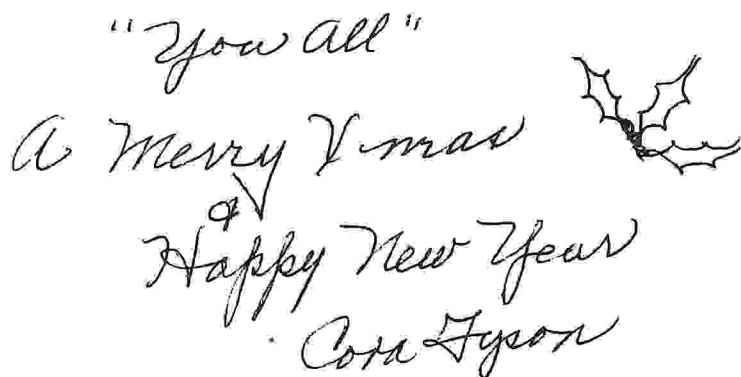 "You all"
A Merry X-mas
&
Happy New Year
Cora Tyson